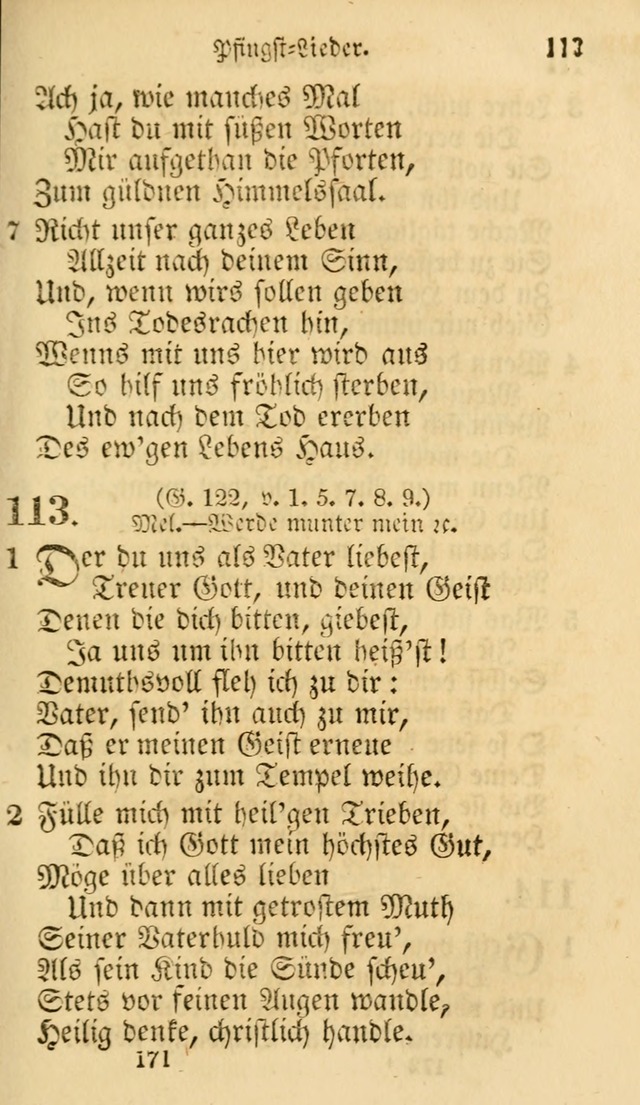 Pfingst-Lieder. 113
Ach ja, wie manches Mal
Hast du mit süßen Worten
Mir aufgethan die Pforten,
Zum güldnen Himmelssaal.
7 Richt unser ganzes Leben
Allzeit nach deinem Sinn,
Und, wenn wirs sollen geben
Ins Todesrachen hin,
Wenns mit uns hier wird aus
So hilf uns fröhlich sterben,
Und nach dem Tod ererben
Des ew'gen Lebens Haus.
113. (G. 122, v. 1. 5. 7. 8. 9.)
Mel.—Werde munter mein ꝛc.
1 Der du uns als Vater liebest,
Treuer Gott, und deinen Geist
Denen die dich bitten, giebest,
Ja uns um ihn bitten heiß'st!
Demuthsvoll fleh ich zu dir:
Vater, send' ihn auch zu mir,
Daß er meinen Geist erneue
Und ihn dir zum Tempel weihe.
2 Fülle mich mit heil'gen Trieben,
Daß ich Gott mein höchstes Gut,
Möge über alles lieben
Und dann mit getrostem Muth
Seiner Vaterhuld mich freu',
Als sein Kind die Sünde scheu',
Stets vor seinen Augen wandle,
Heilig denke, christlich handle.
171